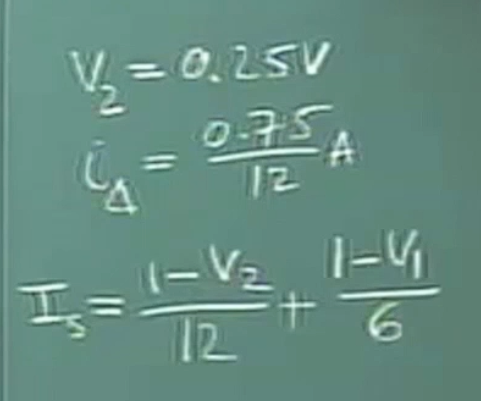 V₂ = 0.25V
i_Δ = 0.75/12 A
I_s = (1-V₂)/12 + (1-V₁)/6